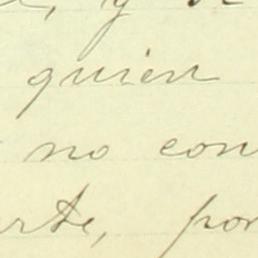 , y
quien
no con
rte, por